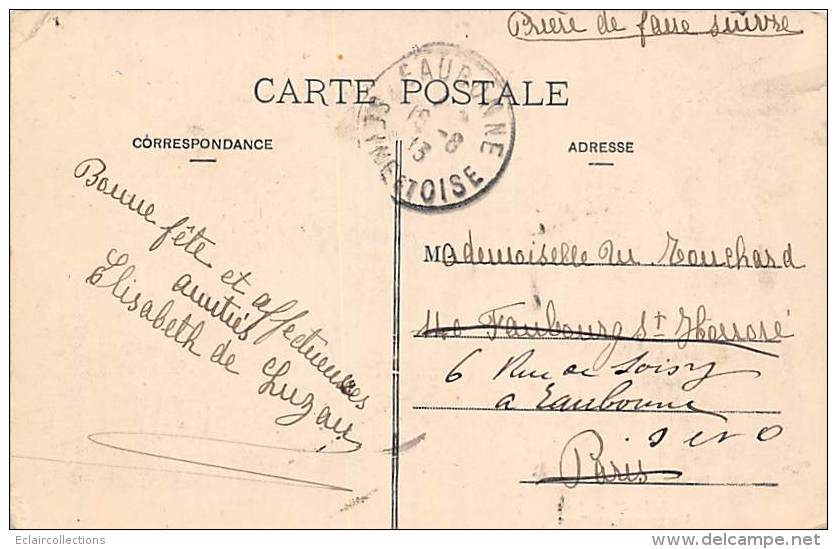 Prière de faire suivre
CARTE POSTALE
EAUBONNE
16 -8
13
SEINE ET OISE
CORRESPONDANCE
ADRESSE
Bonne fête et affectueuses
amitiés
Elisabeth de Luzan
Mademoiselle du Touchard
110 Faubourg St Honoré
6 Rue de Soisy
à Eaubonne
S et O
Paris
Eclaircollections
www.delcampe.net